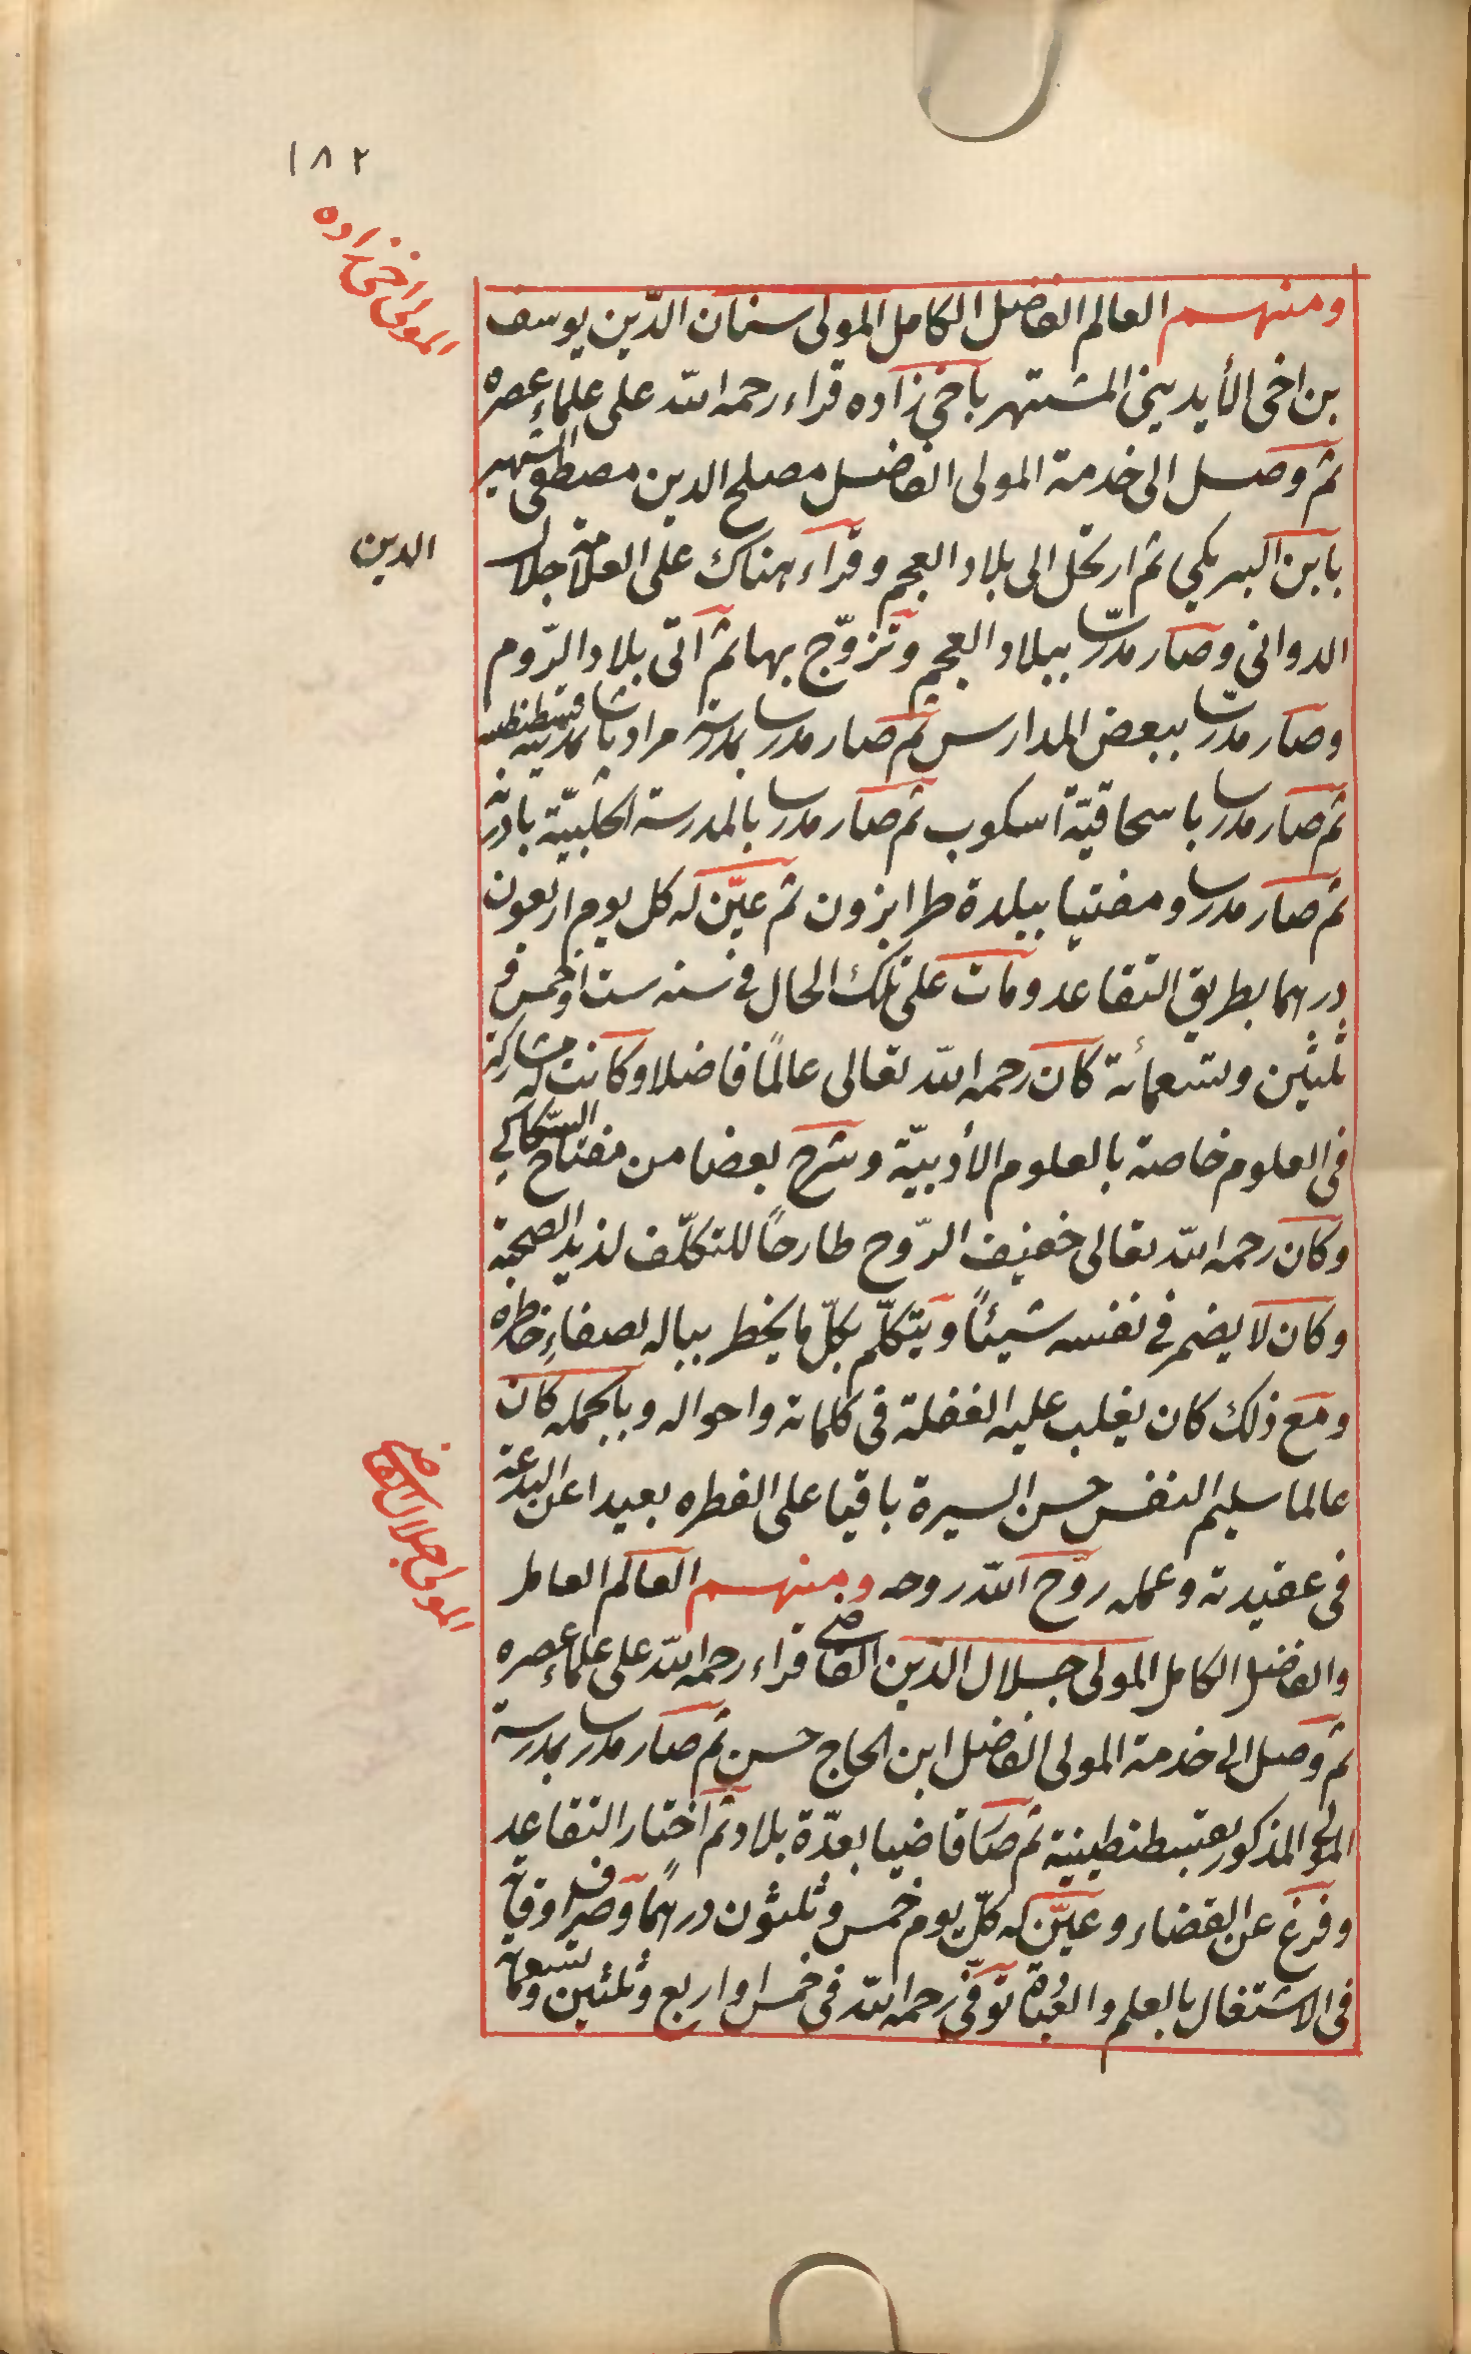 ١٨٢
المولى اخى زاده
ومنهم العالم الفاضل الكامل المولى سنان الدّين يوسف
بن اخى الأيدينى المشتهر باخى زاده قراء رحمه الله على علماء عصره
ثم وصل الى خدمة المولى الفاضل مصلح الدين مصطفى الشهير
بابن البريكى ثم ارتحل الى بلاد العجم وقراء هناك على العلامة جلال
الدين
الدوانى وصار مدرّسا ببلاد العجم وتزوّج بها ثم اتى بلاد الرّوم
وصار مدرّسا ببعض المدارس ثم صار مدرسا بمدرسة مراد پاشا بمدينة قسطنطنيه
ثم صار مدرسا باسحاقيّة اسكوب ثم صار مدرسا بالمدرسة الحلبيّة بادرنه
ثم صار مدرسا ومفتيا ببلدة طرابزون ثم عيّن له كل يوم اربعون
درهما بطريق التقاعد ومات على تلك الحال فى سنه ست او خمس و
ثلثين وتسعمائة كان رحمه الله تعالى عالمًا فاضلا وكانت له مشاركة
فى العلوم خاصة بالعلوم الأدبيّة وشرح بعضا من مفتاح السّكاكي
وكان رحمه الله تعالى خفيف الرّوح طارحًا للتكلّف لذيذ الصحبة
وكان لا يضمر فى نفسه شيئًا ويتكلّم بكلّ ما يخطر بباله لصفاءِ خاطره
ومع ذلك كان يغلب عليه الغفلة فى كلماته واحواله وبالجمله كان
عالما سليم النفس حسن السيرة باقيا على الفطره بعيدا عن البدعة
فى عقيدته وعمله روّح الله روحه ومنهم العالم العامل
المولى جلال القاضى
والفاضل الكامل المولى جلال الدّين القاضى قراء رحمه الله على علماءِ عصره
ثم وصل الى خدمة المولى الفاضل ابن الحاج حسن ثم صار مدرسا بمدرسة
المولى المذكور بقسطنطينية ثم صار قاضيا بعدّة بلاد ثم اختار التقاعد
وفرغ عن القضاء وعيّن له كلّ يوم خمس وثلثون درهمًا وصرف اوقاته
فى الاشتغال بالعلم والعبادة توفّى رحمه الله فى خمس او اربع وثلثين وتسعمائة